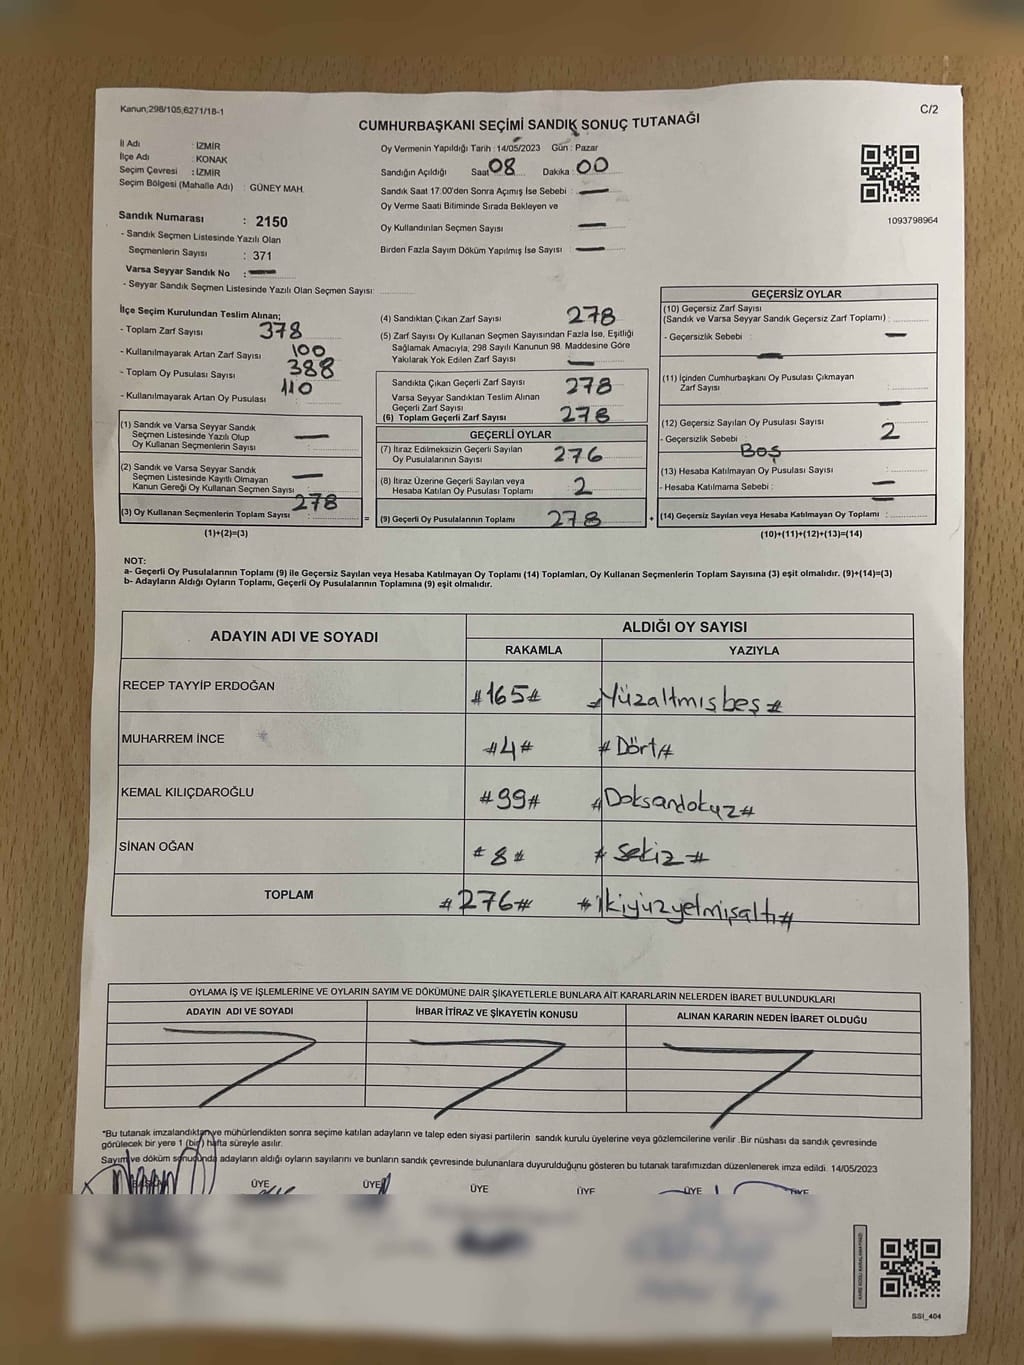 Kanun;298/105,6271/18-1
C/2
CUMHURBAŞKANI SEÇİMİ SANDIK SONUÇ TUTANAĞI
İl Adı : İZMİR
İlçe Adı : KONAK
Seçim Çevresi : İZMİR
Seçim Bölgesi (Mahalle Adı) : GÜNEY MAH.
Sandık Numarası : 2150
- Sandık Seçmen Listesinde Yazılı Olan
Seçmenlerin Sayısı : 371
Varsa Seyyar Sandık No :
- Seyyar Sandık Seçmen Listesinde Yazılı Olan Seçmen Sayısı:
Oy Vermenin Yapıldığı Tarih : 14/05/2023 Gün : Pazar
Sandığın Açıldığı Saat 08 Dakika : 00
Sandık Saat 17:00'den Sonra Açımış İse Sebebi :
Oy Verme Saati Bitiminde Sırada Bekleyen ve
Oy Kullandırılan Seçmen Sayısı
Birden Fazla Sayım Döküm Yapılmış İse Sayısı :
1093798964
İlçe Seçim Kurulundan Teslim Alınan;
- Toplam Zarf Sayısı 378
- Kullanılmayarak Artan Zarf Sayısı 100
- Toplam Oy Pusulası Sayısı 388
- Kullanılmayarak Artan Oy Pusulası 110
(1) Sandık ve Varsa Seyyar Sandık
Seçmen Listesinde Yazılı Olup
Oy Kullanan Seçmenlerin Sayısı
(2) Sandık ve Varsa Seyyar Sandık
Seçmen Listesinde Kayıtlı Olmayan
Kanun Gereği Oy Kullanan Seçmen Sayısı
(3) Oy Kullanan Seçmenlerin Toplam Sayısı : 278
(1)+(2)=(3)
=
(4) Sandıktan Çıkan Zarf Sayısı 278
(5) Zarf Sayısı Oy Kullanan Seçmen Sayısından Fazla İse, Eşitliği
Sağlamak Amacıyla, 298 Sayılı Kanunun 98. Maddesine Göre
Yakılarak Yok Edilen Zarf Sayısı
Sandıkta Çıkan Geçerli Zarf Sayısı 278
Varsa Seyyar Sandıktan Teslim Alınan
Geçerli Zarf Sayısı
(6) Toplam Geçerli Zarf Sayısı 278
GEÇERLİ OYLAR
(7) İtiraz Edilmeksizin Geçerli Sayılan
Oy Pusulalarının Sayısı 276
(8) İtiraz Üzerine Geçerli Sayılan veya
Hesaba Katılan Oy Pusulası Toplamı 2
(9) Geçerli Oy Pusulalarının Toplamı 278
+
GEÇERSİZ OYLAR
(10) Geçersiz Zarf Sayısı
(Sandık ve Varsa Seyyar Sandık Geçersiz Zarf Toplamı) :
- Geçersizlik Sebebi :
(11) İçinden Cumhurbaşkanı Oy Pusulası Çıkmayan
Zarf Sayısı :
(12) Geçersiz Sayılan Oy Pusulası Sayısı 2
- Geçersizlik Sebebi : BOŞ
(13) Hesaba Katılmayan Oy Pusulası Sayısı :
- Hesaba Katılmama Sebebi :
(14) Geçersiz Sayılan veya Hesaba Katılmayan Oy Toplamı :
(10)+(11)+(12)+(13)=(14)
NOT:
a- Geçerli Oy Pusulalarının Toplamı (9) ile Geçersiz Sayılan veya Hesaba Katılmayan Oy Toplamı (14) Toplamları, Oy Kullanan Seçmenlerin Toplam Sayısına (3) eşit olmalıdır. (9)+(14)=(3)
b- Adayların Aldığı Oyların Toplamı, Geçerli Oy Pusulalarının Toplamına (9) eşit olmalıdır.
ADAYIN ADI VE SOYADI
ALDIĞI OY SAYISI
RAKAMLA YAZIYLA
RECEP TAYYİP ERDOĞAN #165# #Yüzaltmışbeş#
MUHARREM İNCE #4# #Dört#
KEMAL KILIÇDAROĞLU #99# #Doksandokuz#
SİNAN OĞAN #8# #Sekiz#
TOPLAM #276# #ikiyüzyetmişaltı#
OYLAMA İŞ VE İŞLEMLERİNE VE OYLARIN SAYIM VE DÖKÜMÜNE DAİR ŞİKAYETLERLE BUNLARA AİT KARARLARIN NELERDEN İBARET BULUNDUKLARI
ADAYIN ADI VE SOYADI İHBAR İTİRAZ VE ŞİKAYETİN KONUSU ALINAN KARARIN NEDEN İBARET OLDUĞU
*Bu tutanak imzalandıktan ve mühürlendikten sonra seçime katılan adayların ve talep eden siyasi partilerin sandık kurulu üyelerine veya gözlemcilerine verilir .Bir nüshası da sandık çevresinde
görülecek bir yere 1 (bir) hafta süreyle asılır.
Sayım ve döküm sonucunda adayların aldığı oyların sayılarını ve bunların sandık çevresinde bulunanlara duyurulduğunu gösteren bu tutanak tarafımızdan düzenlenerek imza edildi. 14/05/2023
ÜYE ÜYE ÜYE ÜYE ÜYE ÜYE
SSI_404